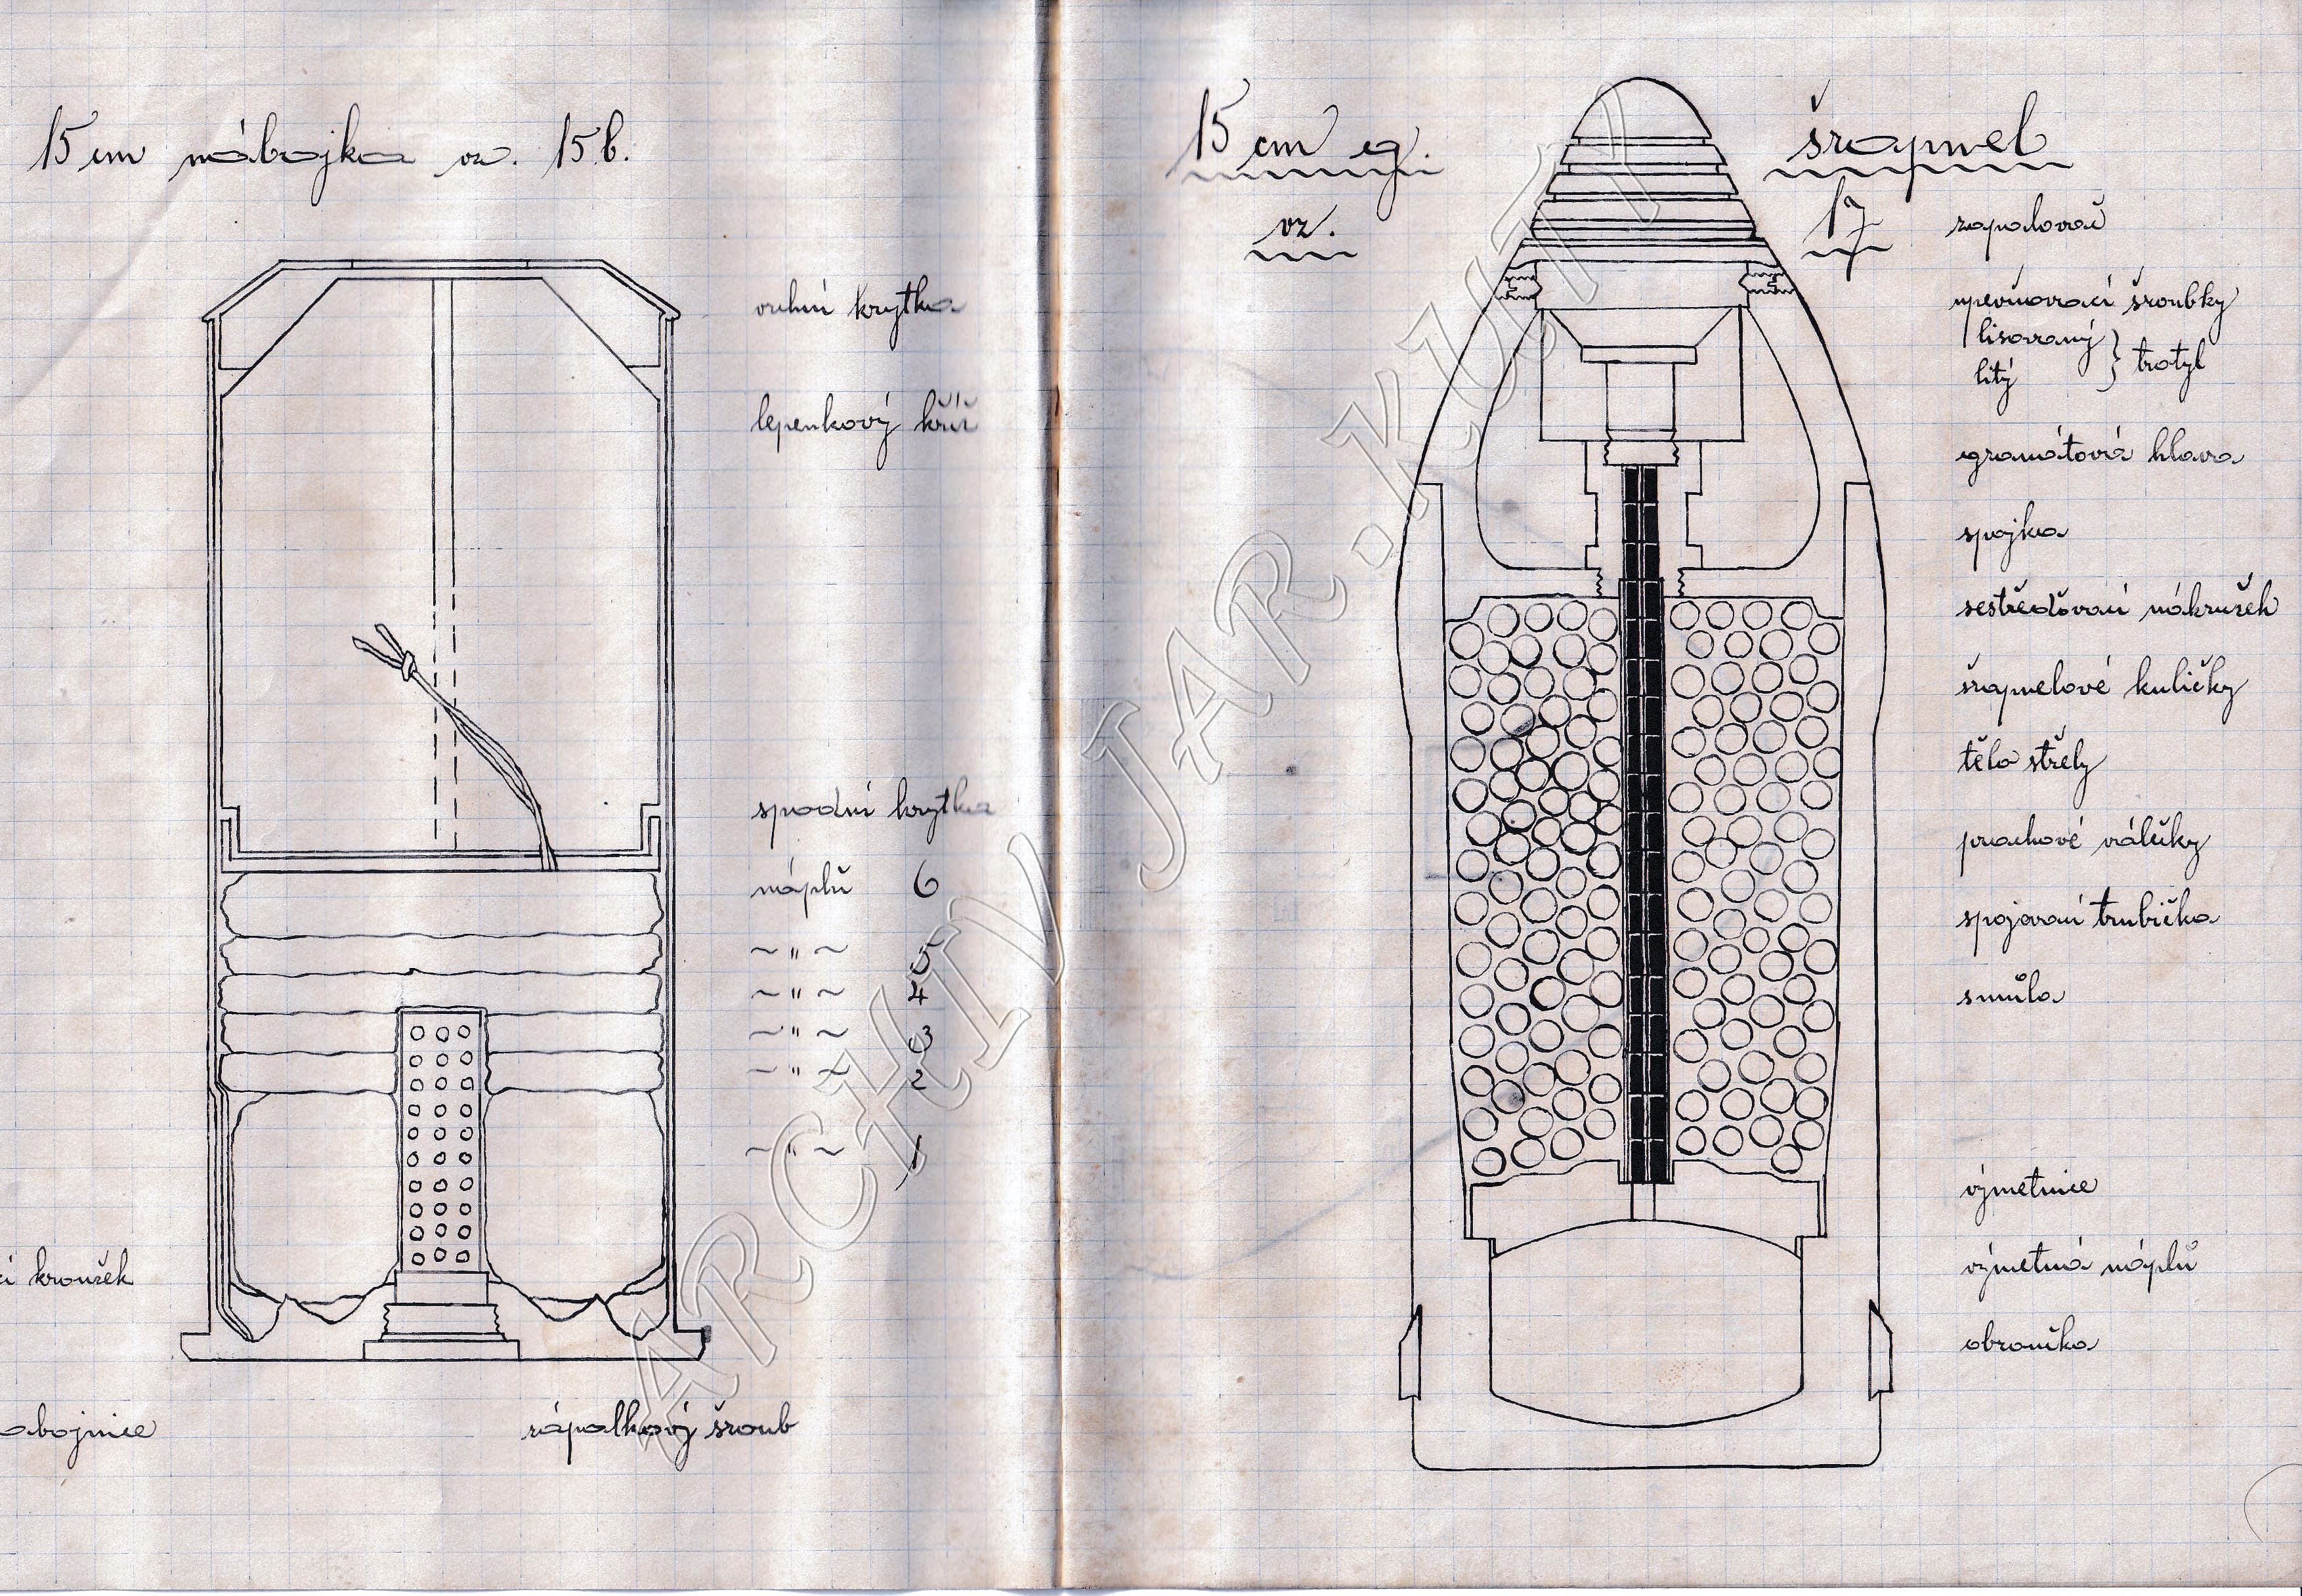 15 cm nábojka vz. 15 b.
vrchní krytka
lepenkový kříž
spodní krytka
náplň 6
~ " ~ 5
~ " ~ 4
~ " ~ 3
~ " ~ 2
~ " ~ 1
cí kroužek
nábojnice
zápalkový šroub
15 cm eg. šrapnel
vz. 17
zapalovač
upevňovací šroubky
lisovaný } trotyl
litý
granátová hlava
spojka
sestřeďovací nákružek
šrapnelové kuličky
tělo střely
prachové válečky
spojovací trubička
smůla
výmetnice
výmetná náplň
obroučka
ARCHIV JAR.KUTÝ